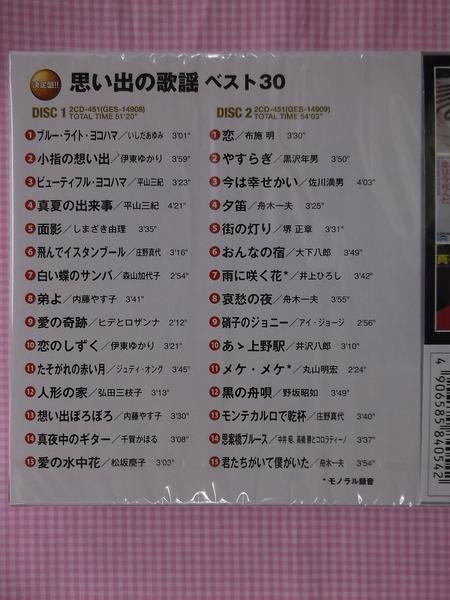 決定盤!!
思い出の歌謡 ベスト30
DISC 1 2CD-451(GES-14908)
TOTAL TIME 51'20"
1 ブルー・ライト・ヨコハマ/いしだあゆみ 3'01"
2 小指の想い出/伊東ゆかり 3'59"
3 ビューティフル・ヨコハマ/平山三紀 3'23"
4 真夏の出来事/平山三紀 4'21"
5 面影/しまざき由理 3'35"
6 飛んでイスタンブール/庄野真代 3'16"
7 白い蝶のサンバ/森山加代子 2'54"
8 弟よ/内藤やす子 3'41"
9 愛の奇跡/ヒデとロザンナ 2'12"
10 恋のしずく/伊東ゆかり 3'21"
11 たそがれの赤い月/ジュディ・オング 3'45"
12 人形の家/弘田三枝子 3'13"
13 想い出ぼろぼろ/内藤やす子 3'30"
14 真夜中のギター/千賀かほる 3'08"
15 愛の水中花/松坂慶子 3'03"
DISC 2 2CD-451(GES-14909)
TOTAL TIME 54'03"
1 恋/布施 明 3'30"
2 やすらぎ/黒沢年男 3'50"
3 今は幸せかい/佐川満男 4'03"
4 夕笛/舟木一夫 3'25"
5 街の灯り/堺 正章 3'31"
6 おんなの宿/大下八郎 3'49"
7 雨に咲く花*/井上ひろし 3'42"
8 哀愁の夜/舟木一夫 3'55"
9 硝子のジョニー/アイ・ジョージ 2'56"
10 あゝ上野駅/井沢八郎 3'10"
11 メケ・メケ*/丸山明宏 2'24"
12 黒の舟唄/野坂昭如 3'49"
13 モンテカルロで乾杯/庄野真代 3'40"
14 思案橋ブルース/中井 昭、高橋 勝とコロラティーノ 3'37"
15 君たちがいて僕がいた/舟木一夫 3'54"
* モノラル録音
4 906585 840542